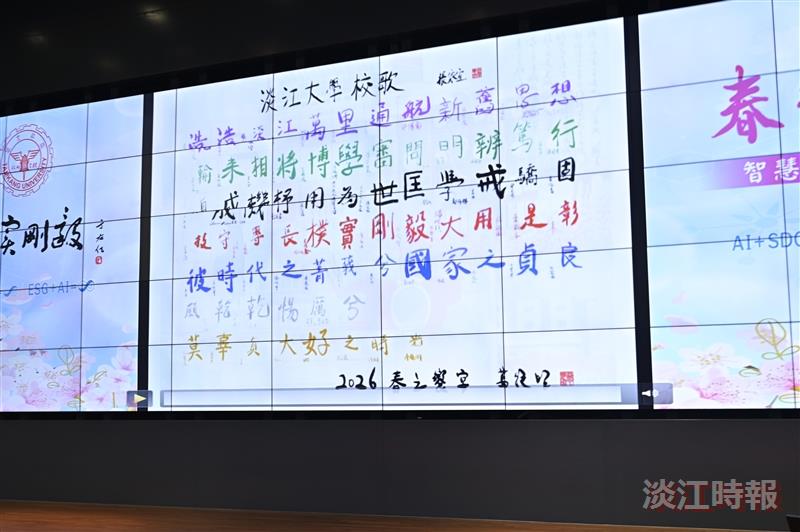 淡江大學校歌 張家宜
浩浩淡江萬里通航新舊思想
輸來相將博學審問明辨篤行
自成機杼用為世匡學戒驕固
技守專長樸實剛毅大用是彰
彼時代之菁莪兮國家之貞良
夙乾乾惕厲兮
莫辜負大好之時光
2026 春之饗宴 葛煥昭
TAMKANG UNIVERSITY
實剛毅
ESG+AI=∞
春
智慧
AI+SDG
淡江時報